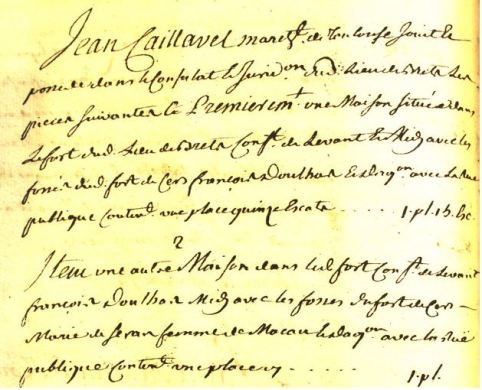 Jean Caillavel march.t de Toulouse Jouit et
possede dans le Consulat et Juridi.on dud. Lieu de Bret les
pieces suivantes Et Premierem.t une Maison située dans
Le fort dud. Lieu de Bret Conf.te de Levant et Midy avec les
fossés dud. fort de Cers françois Doulhac et d'aq.on avec la Rue
publique Conten.t une place quinze Escats . . . . . 1. pl. 15. Esc.
2
Item une autre Maison dans led. fort Conf.te de Levant
françois Doulhac Midy avec les fosses du fort de Cers
Marie de Seran femme de Macau et d'aq.on avec la Rue
publique Conten.t une place cy . . . . . . 1. pl.